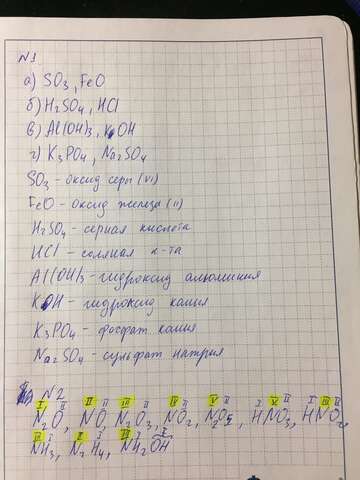 N1
а) SO3, FeO
б) H2SO4, HCl
в) Al(OH)3, KOH
г) K3PO4, Na2SO4
SO3 - оксид серы (VI)
FeO - оксид железа (II)
H2SO4 - серная кислота
HCl - соляная к-та
Al(OH)3 - гидроксид алюминия
KOH - гидроксид калия
K3PO4 - фосфат калия
Na2SO4 - сульфат натрия
N2
I II II II III II IV II V II I V II I III II
N2O, NO, N2O3, NO2, N2O5, HNO3, HNO2,
III I II I I
NH3, N2H4, NH2OH